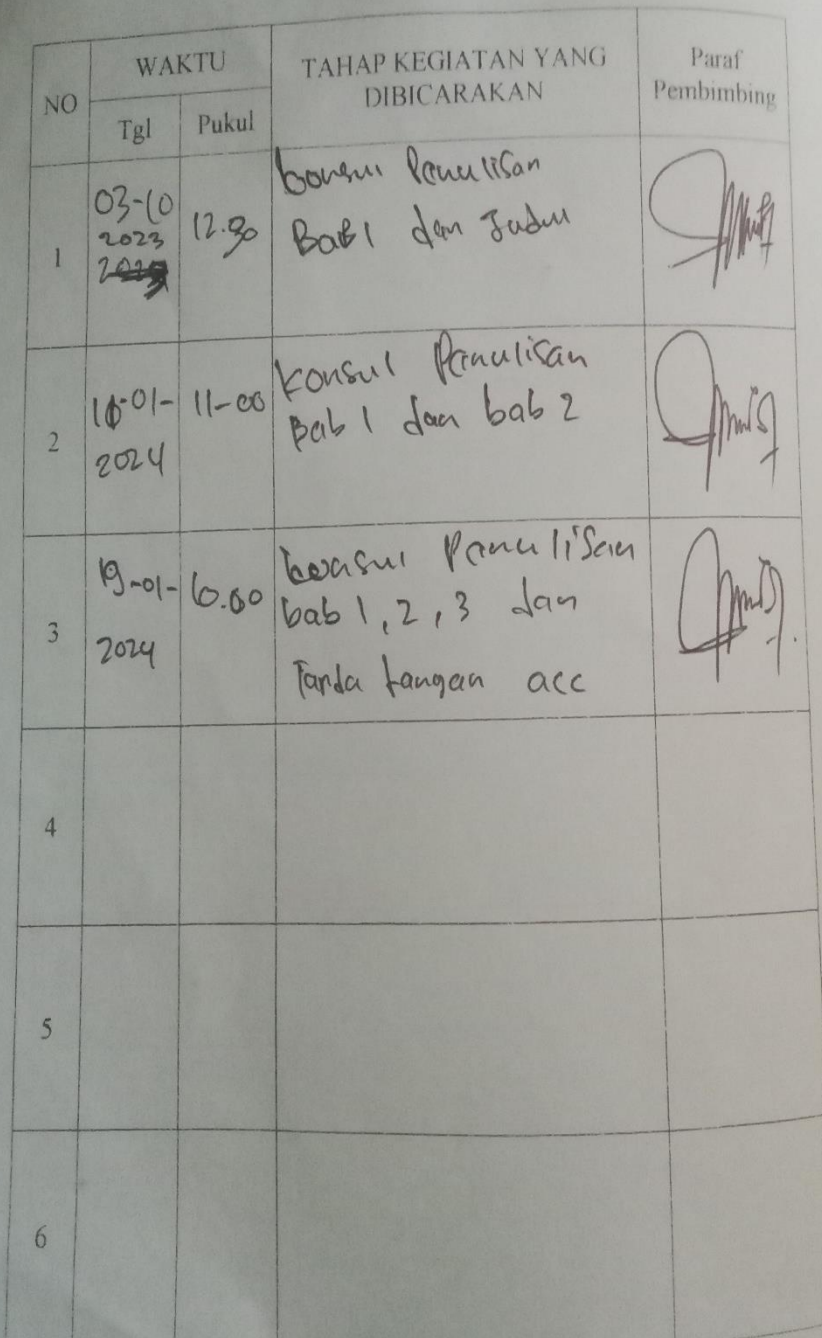 NO
WAKTU
TAHAP KEGIATAN YANG
DIBICARAKAN
Paraf
Pembimbing
Tgl
Pukul
1
03-10
2023
12.30
konsul Penulisan
Bab 1 dan Judul
2
-01-
2024
11-00
konsul Penulisan
Bab 1 dan bab 2
3
19-01-
2024
konsul Penulisan
bab 1, 2, 3 dan
Tanda tangan acc
4
5
6